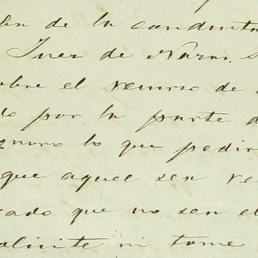 en de la conducta
Juez de Nazas
obre el recurso de
do por la parte d
gnoro lo que pedir
que aquel sea re
cado que no sea el
olicite ni tome